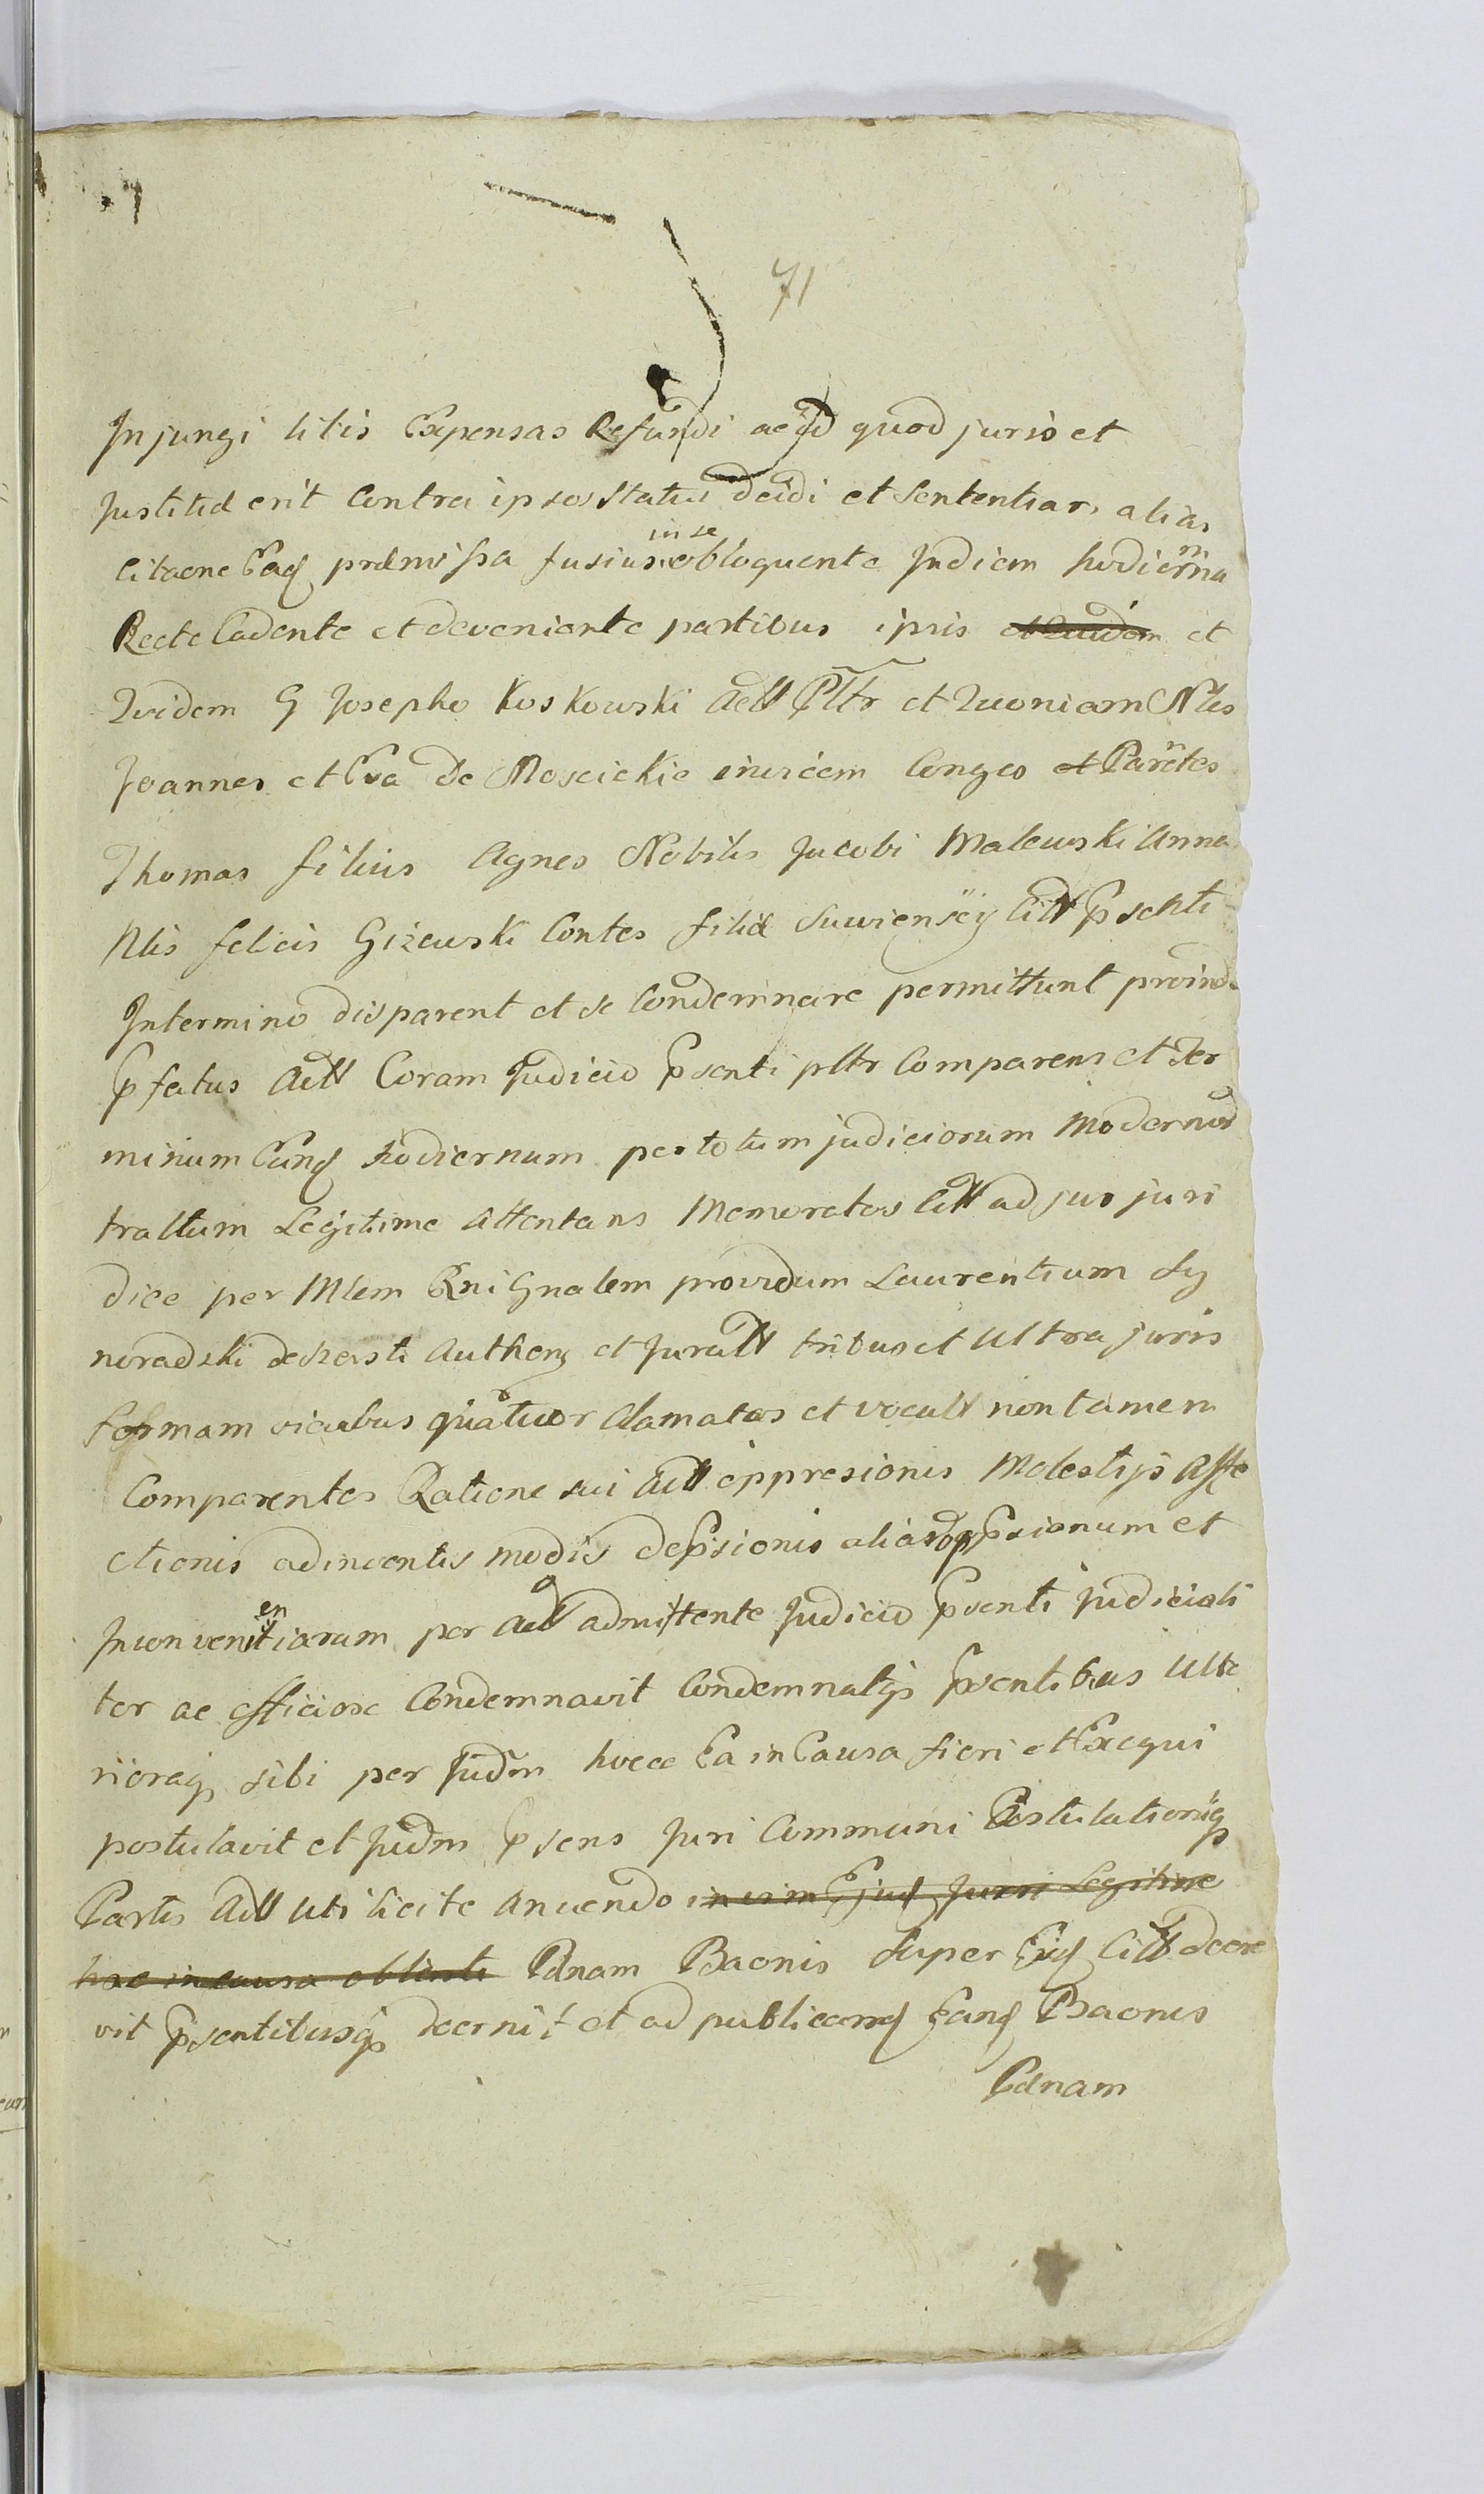 71
Injungi litis Expensas Refundi ac id quod juris et
Justitiæ erit Contra ipsos Statui decidi et Sententiari alias
Citaone Eadq præmissa fusius in se obloquente Indiem hodiernna
Recte Cadente et deveniente partibus ipsis et quidem et
Quidem G Josepho Koskowski Actt Pltr et Quoniam Nles
Joannes et Eva De Moscickie invicem Conges et Parentes
Thomas filius Agnes Nobilis Jacobi Malewski Anna
Nlis felicis Gizewski Contes filiæ Suviensij Citt Psehti
Intermino disparent et se Condemnare permittunt proinde
Pfatus Actt Coram Judicio Psenti pltr Comparens et Ter
minum Eunq hodiernum per totum judiciorum Modernor
tractum Legitime Attentans Memoratos Citt ad jus juri
dice per Mlem Rni Gnalem providum Laurentium Sy
noradzki de Authenq et Juratt tribus et Ultra juris
Formam vicibus quatuor Clamatos et vocatt non tamen
Comparentes Ratione sui Actt oppresionis Molestijs Affe
ctionis adinventis modis dePsionis alias opPsionum et
Inconvenientiarum per Actt admittente Judicio Psenti Judiciali
ter ac efficiose Condemnavit Condemnatqs Psentibus Ulte
rioraq sibi per Judm hocce Ea in Causa fieri et Exequi
postulavit et Judm Psens Juri Communi Postulationiq
Partis Actt Uti licite Anuendo in vim Ejusq Juri Legitime
hac in causa obtenti Pænam Baonis Super Eisq Citt decre
vit Psentibusq decernit et ad publicanq Eanq Baonis
Pænam